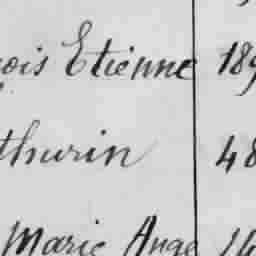 ois Etienne 189
thurin 48
Marie Ange 14